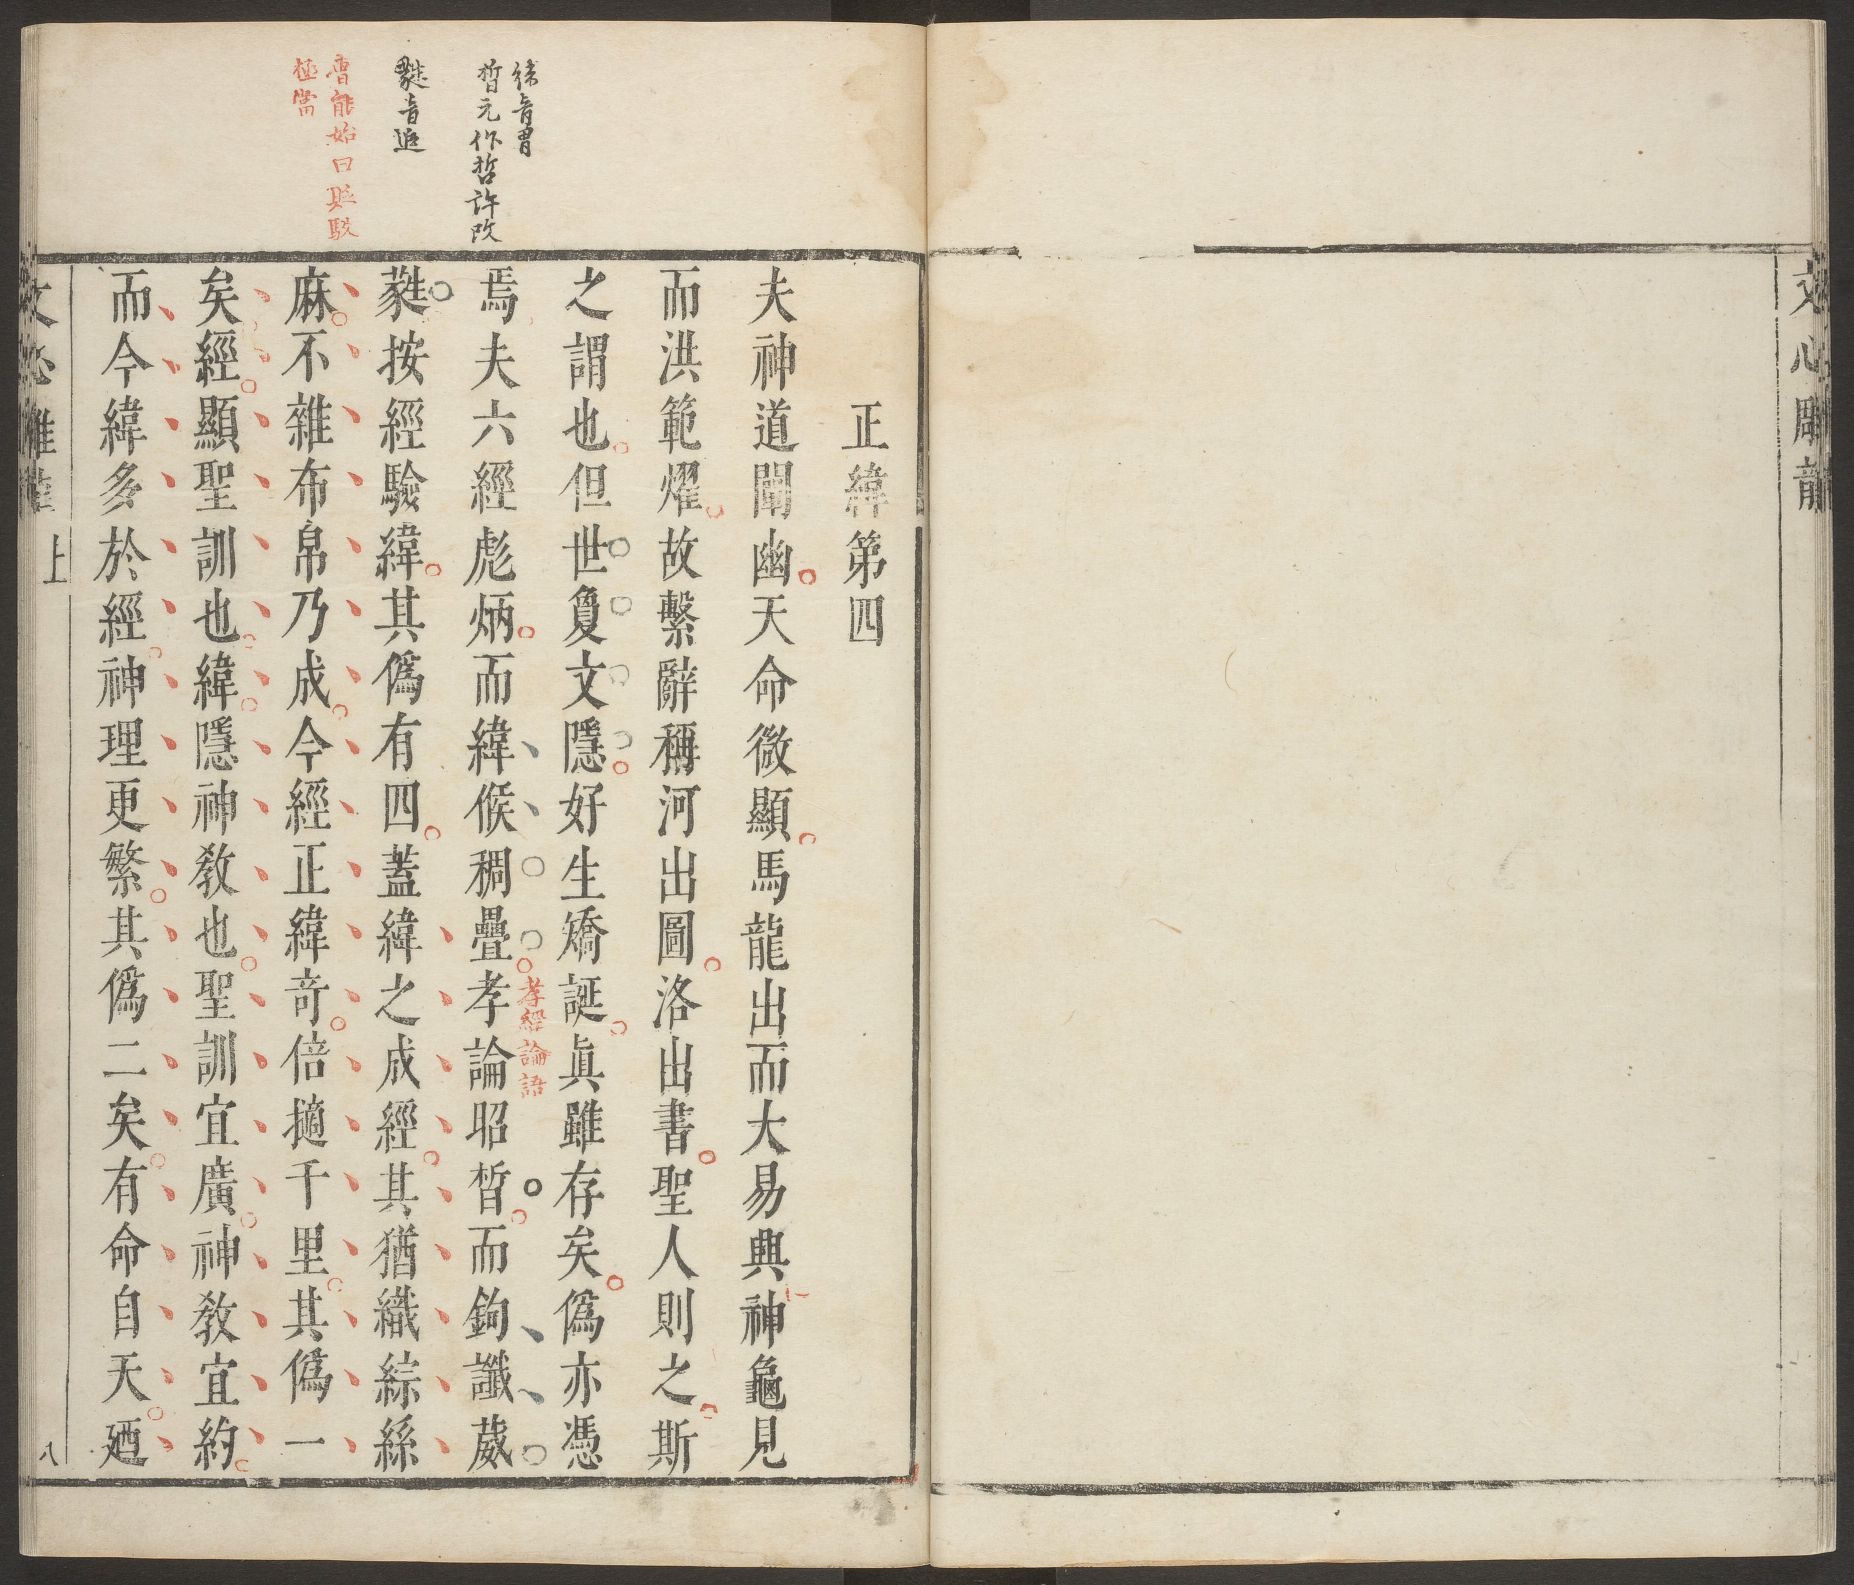 文心雕龍
緯音胃
晳元作哲許改
蘳音追
曹能始曰貶駁
極當
正緯第四
夫神道闡幽天命微顯馬龍出而大易興神龜見
而洪範燿故繫辭稱河出圖洛出書聖人則之斯
之謂也但世敻文隱好生矯誕眞雖存矣僞亦憑
焉夫六經彪炳而緯候稠疊孝論昭晳而鉤讖葳
孝經論語
蕤按經驗緯其僞有四蓋緯之成經其猶織綜絲
麻不雜布帛乃成今經正緯奇倍擿千里其僞一
矣經顯聖訓也緯隱神敎也聖訓宜廣神敎宜約
而今緯多於經神理更繁其僞二矣有命自天廼
文心雕龍 上
八